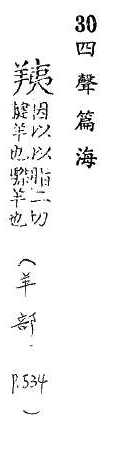 30四聲篇海
羠
因以以脂二切
犍羊也羊也
（羊部．P.534）